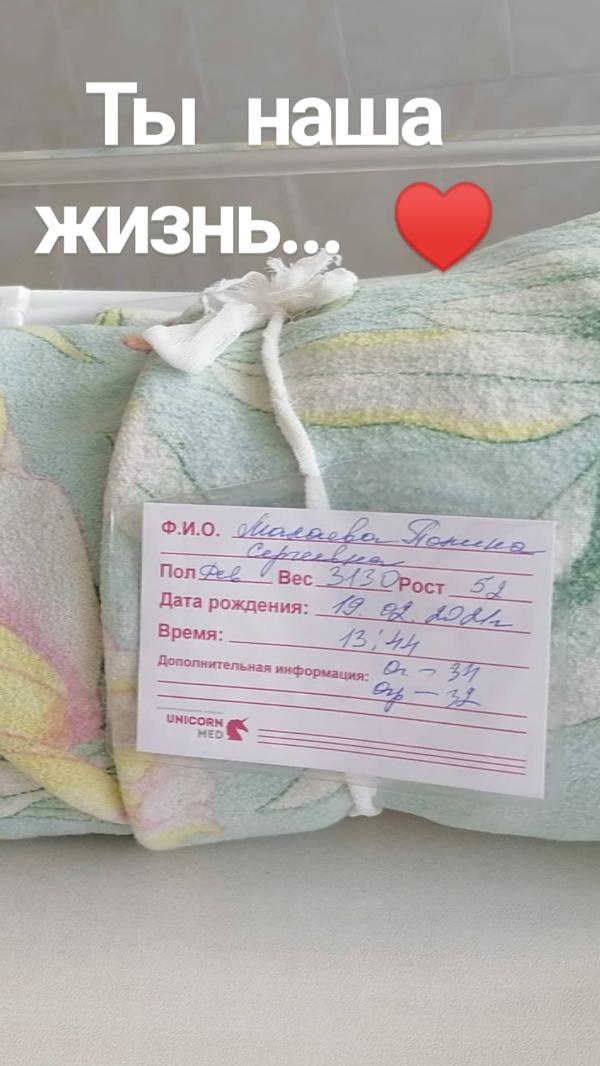 Ты наша
жизнь...
Ф.И.О. Малаева Полина
Сергеевна
Пол Вес 3130 Рост 52
Дата рождения: 19.02.2021г
Время: 13:44
Дополнительная информация: ог - 34
огр - 32
UNICORN
MED